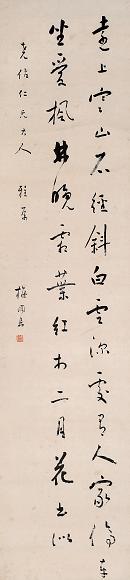 遠上寒山石徑斜白雲深處有人家停車
坐愛楓林晚霜葉紅於二月花 書似
堯仁兄大人 雅屬
梅調鼎